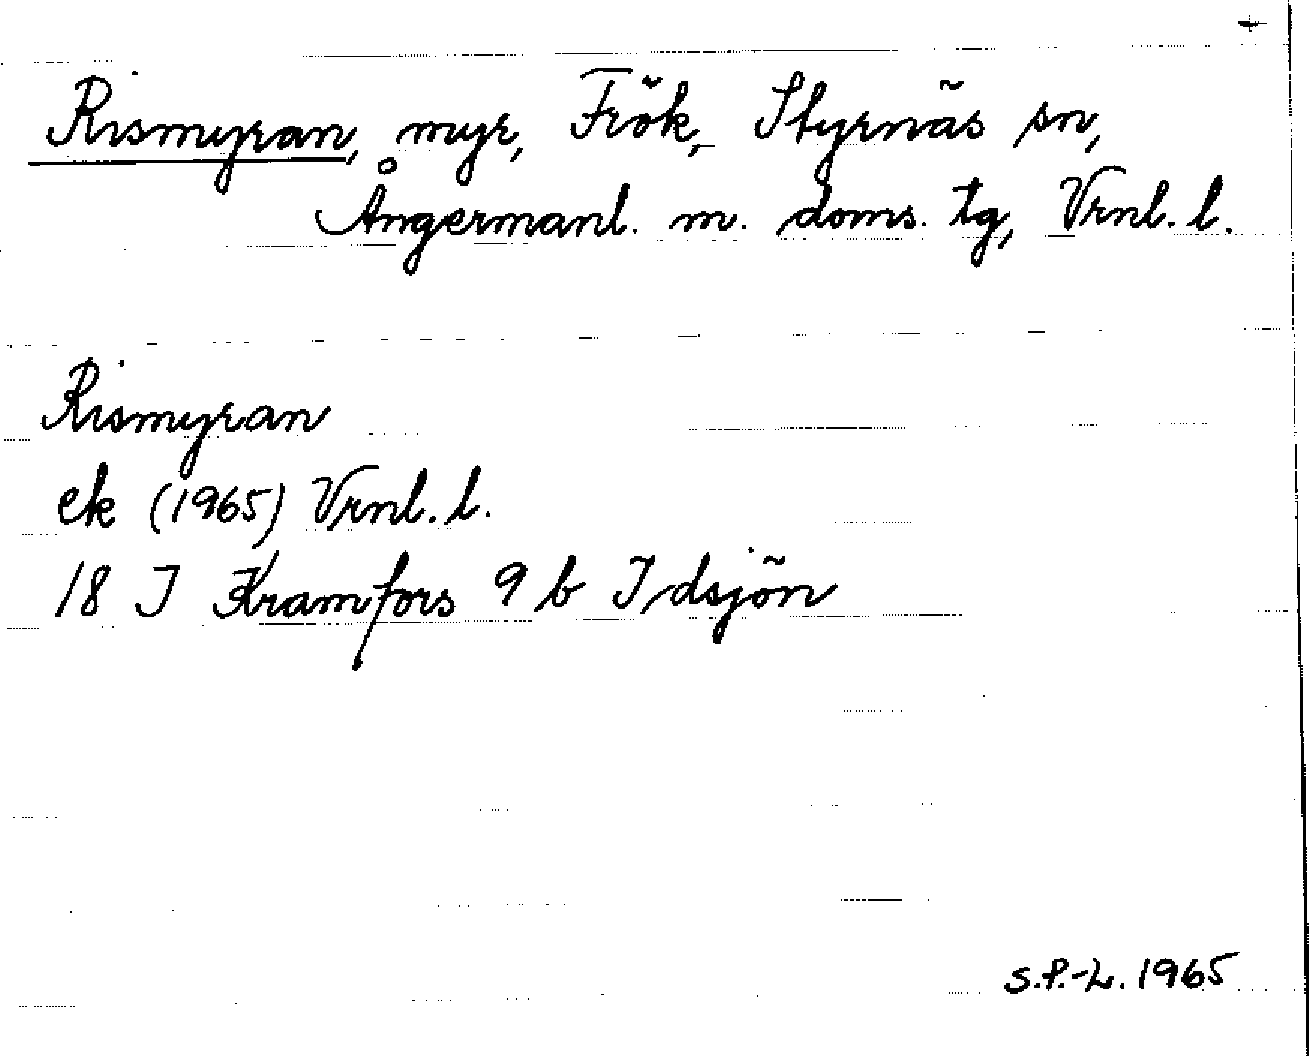 Rismyran, myr, Frök, Styrnäs sn,
Ångermanl. m. doms. tg, Vrnl. l.
Rismyran
ek (1965) Vrnl. l.
18 I Kramfors 9 b Idsjön
S.P.-L. 1965